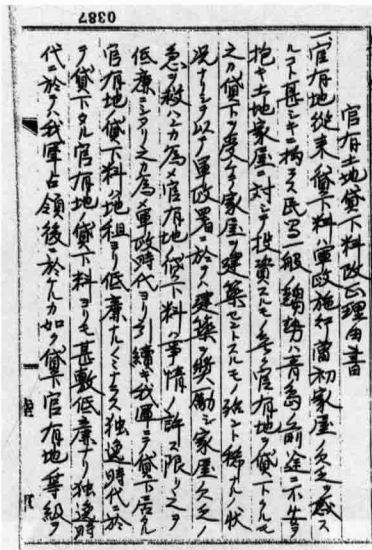 0387
官有土地貸下料改正理由書
一、官有地従来ノ貸下料ハ軍政施行当初家屋欠乏ヲ感ス
ルコト甚シキニ拘ラス民間一般趨勢青島ノ前途ニ不安ヲ
抱キ土地家屋ニ対シテ投資スルモノ無ク官有地ヲ貸下クルモ
之カ貸下ヲ受ケ家屋ヲ建築セントスルモノ殆ント稀ナル状
況ナリシヲ以テ軍政署ニ於テハ建築ヲ奨励シ家屋欠乏ノ
急ヲ救ハンカ為メ官有地ノ貸下料ハ事情ノ許ス限リ之ヲ
低廉ニシタリ之カ為メ軍政時代ヨリ引続キ我軍ニテ貸下居ル
官有地ノ貸下料ハ地租ヨリ低廉ナルノミナラス独逸時代ニ於
テ貸下タル官有地ノ貸下料ヨリモ甚敷低廉ナリ独逸時
代ニ於テハ我軍占領後ニ於ケルカ如ク貸下官有地ノ等級ヲ